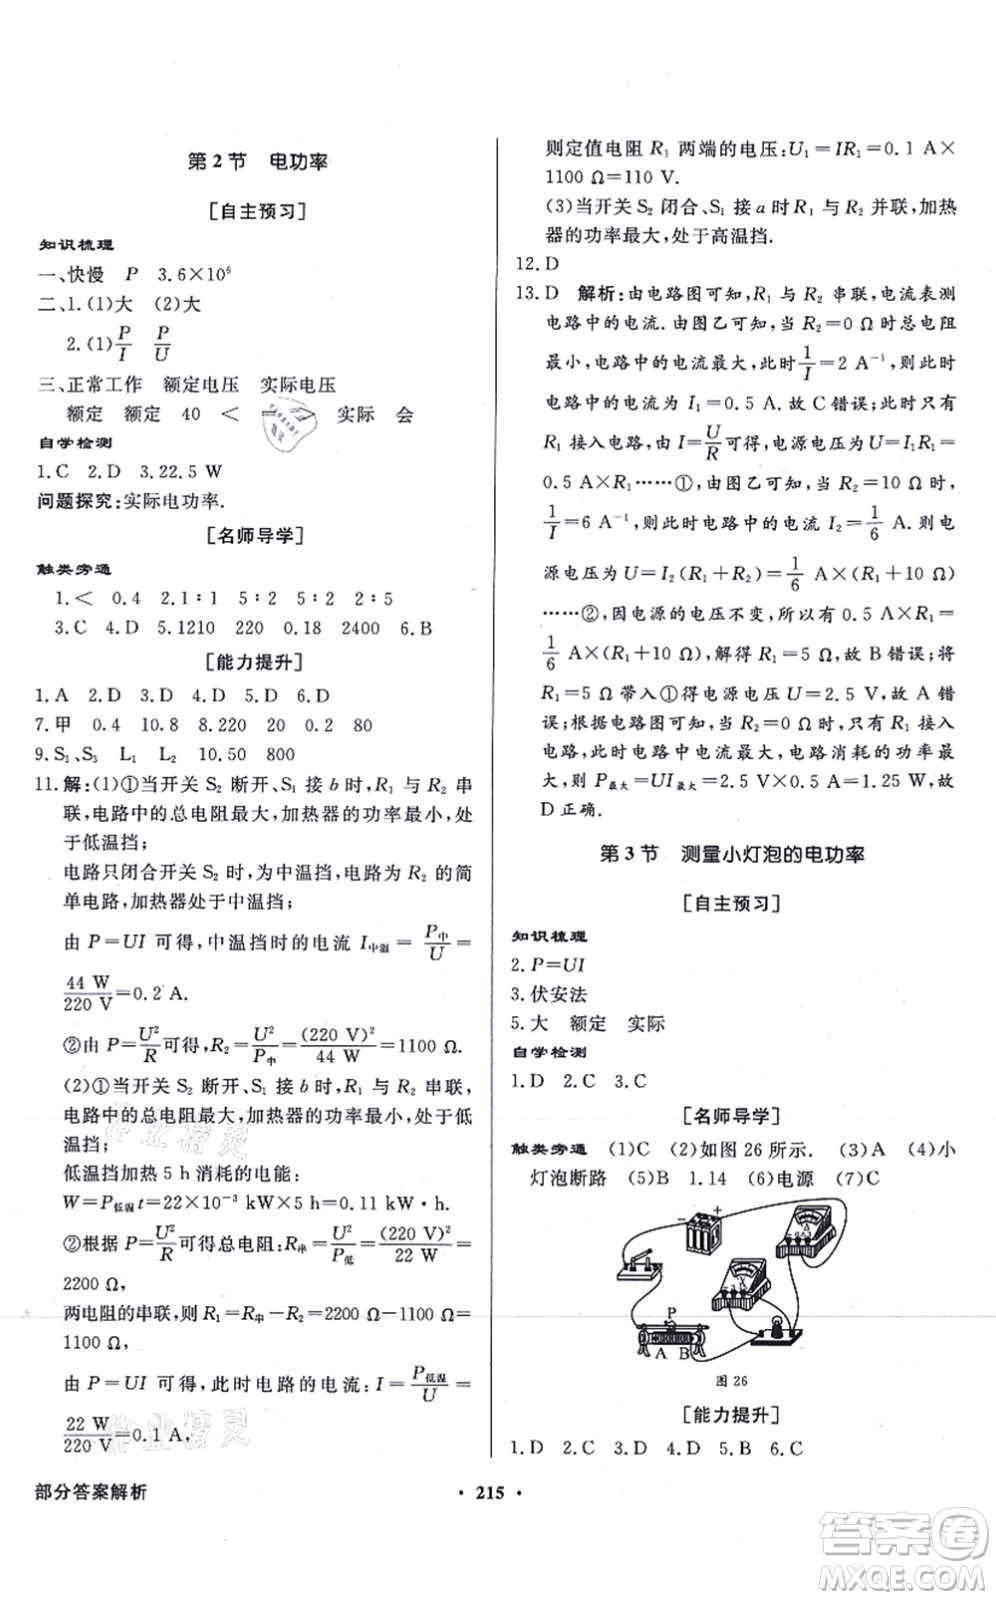 第2节　电功率
[自主预习]
知识梳理
一、快慢　P　3.6×10⁶
二、1.(1)大　(2)大
2.(1)P/I　P/U
三、正常工作　额定电压　实际电压
额定　额定　40　<　　实际　会
自学检测
1.C　2.D　3.22.5 W
问题探究:实际电功率.
[名师导学]
触类旁通
1.<　0.4　2.1∶1　5∶2　5∶2　2∶5
3.C　4.D　5.1210　220　0.18　2400　6.B
[能力提升]
1.A　2.D　3.D　4.D　5.D　6.D
7.甲　0.4　10.8　8.220　20　0.2　80
9.S₁、S₃　L₁　L₂　10.50　800
11.解:(1)①当开关 S₂ 断开、S₁ 接 b 时,R₁ 与 R₂ 串
联,电路中的总电阻最大,加热器的功率最小,处
于低温挡;
电路只闭合开关 S₂ 时,为中温挡,电路为 R₂ 的简
单电路,加热器处于中温挡;
由 P=UI 可得,中温挡时的电流 I中温=P中/U=
44 W/220 V=0.2 A.
②由 P=U²/R可得,R₂=U²/P中=(220 V)²/44 W=1100 Ω.
(2)①当开关 S₂ 断开、S₁ 接 b 时,R₁ 与 R₂ 串联,
电路中的总电阻最大,加热器的功率最小,处于低
温挡;
低温挡加热 5 h 消耗的电能:
W=P低温t=22×10⁻³ kW×5 h=0.11 kW·h.
②根据 P=U²/R可得总电阻:R串=U²/P低温=(220 V)²/22 W=
2200 Ω,
两电阻的串联,则 R₁=R串−R₂=2200 Ω−1100 Ω=
1100 Ω,
由 P=UI 可得,此时电路的电流:I=P低温/U=
22 W/220 V=0.1 A,
则定值电阻 R₁ 两端的电压:U₁=IR₁=0.1 A×
1100 Ω=110 V.
(3)当开关 S₂ 闭合、S₁ 接 a 时 R₁ 与 R₂ 并联,加热
器的功率最大,处于高温挡.
12.D
13.D　解析:由电路图可知,R₁ 与 R₂ 串联,电流表测
电路中的电流.由图乙可知,当 R₂=0 Ω 时总电阻
最小,电路中的电流最大,此时1/I=2 A⁻¹,则此时
电路中的电流为 I₁=0.5 A.故 C 错误;此时只有
R₁ 接入电路,由 I=U/R可得,电源电压 U=I₁R₁=
0.5 A×R₁……①,由图乙可知,当 R₂=10 Ω 时,
1/I=6 A⁻¹,则此时电路中的电流 I₂=1/6 A.则电
源电压为 U=I₂(R₁+R₂)=1/6 A×(R₁+10 Ω)
……②,因电源的电压不变,所以有 0.5 A×R₁=
1/6 A×(R₁+10 Ω),解得 R₁=5 Ω,故 B 错误;将
R₁=5 Ω 带入①得电源电压 U=2.5 V,故 A 错
误;根据电路图可知,当 R₂=0 Ω 时,只有 R₁ 接入
电路,此时电路中电流最大,电路消耗的功率最
大,则 P最大=UI最大=2.5 V×0.5 A=1.25 W,故
D 正确.
第3节　测量小灯泡的电功率
[自主预习]
知识梳理
2.P=UI
3.伏安法
5.大　额定　实际
自学检测
1.D　2.C　3.C
[名师导学]
触类旁通　(1)C　(2)如图 26 所示.　(3)A　(4)小
灯泡断路　(5)B　1.14　(6)电源　(7)C
− +
A
V
P
A　B
图 26
[能力提升]
1.D　2.C　3.C　4.D　5.B　6.C
部分答案解析
• 215 •
答案卷
MXQE.COM